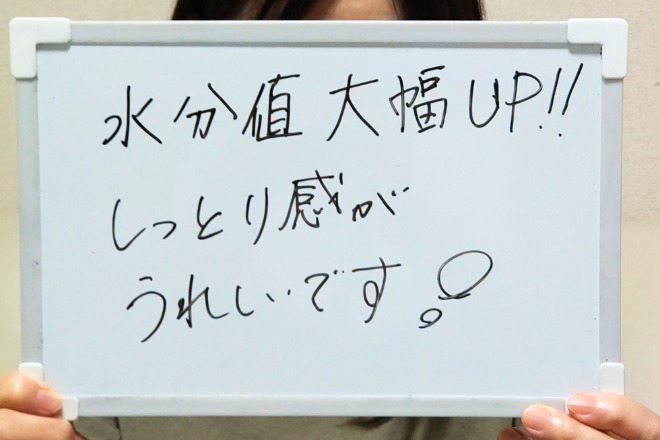 水分値大幅UP!!
しっとり感が
うれしいです!